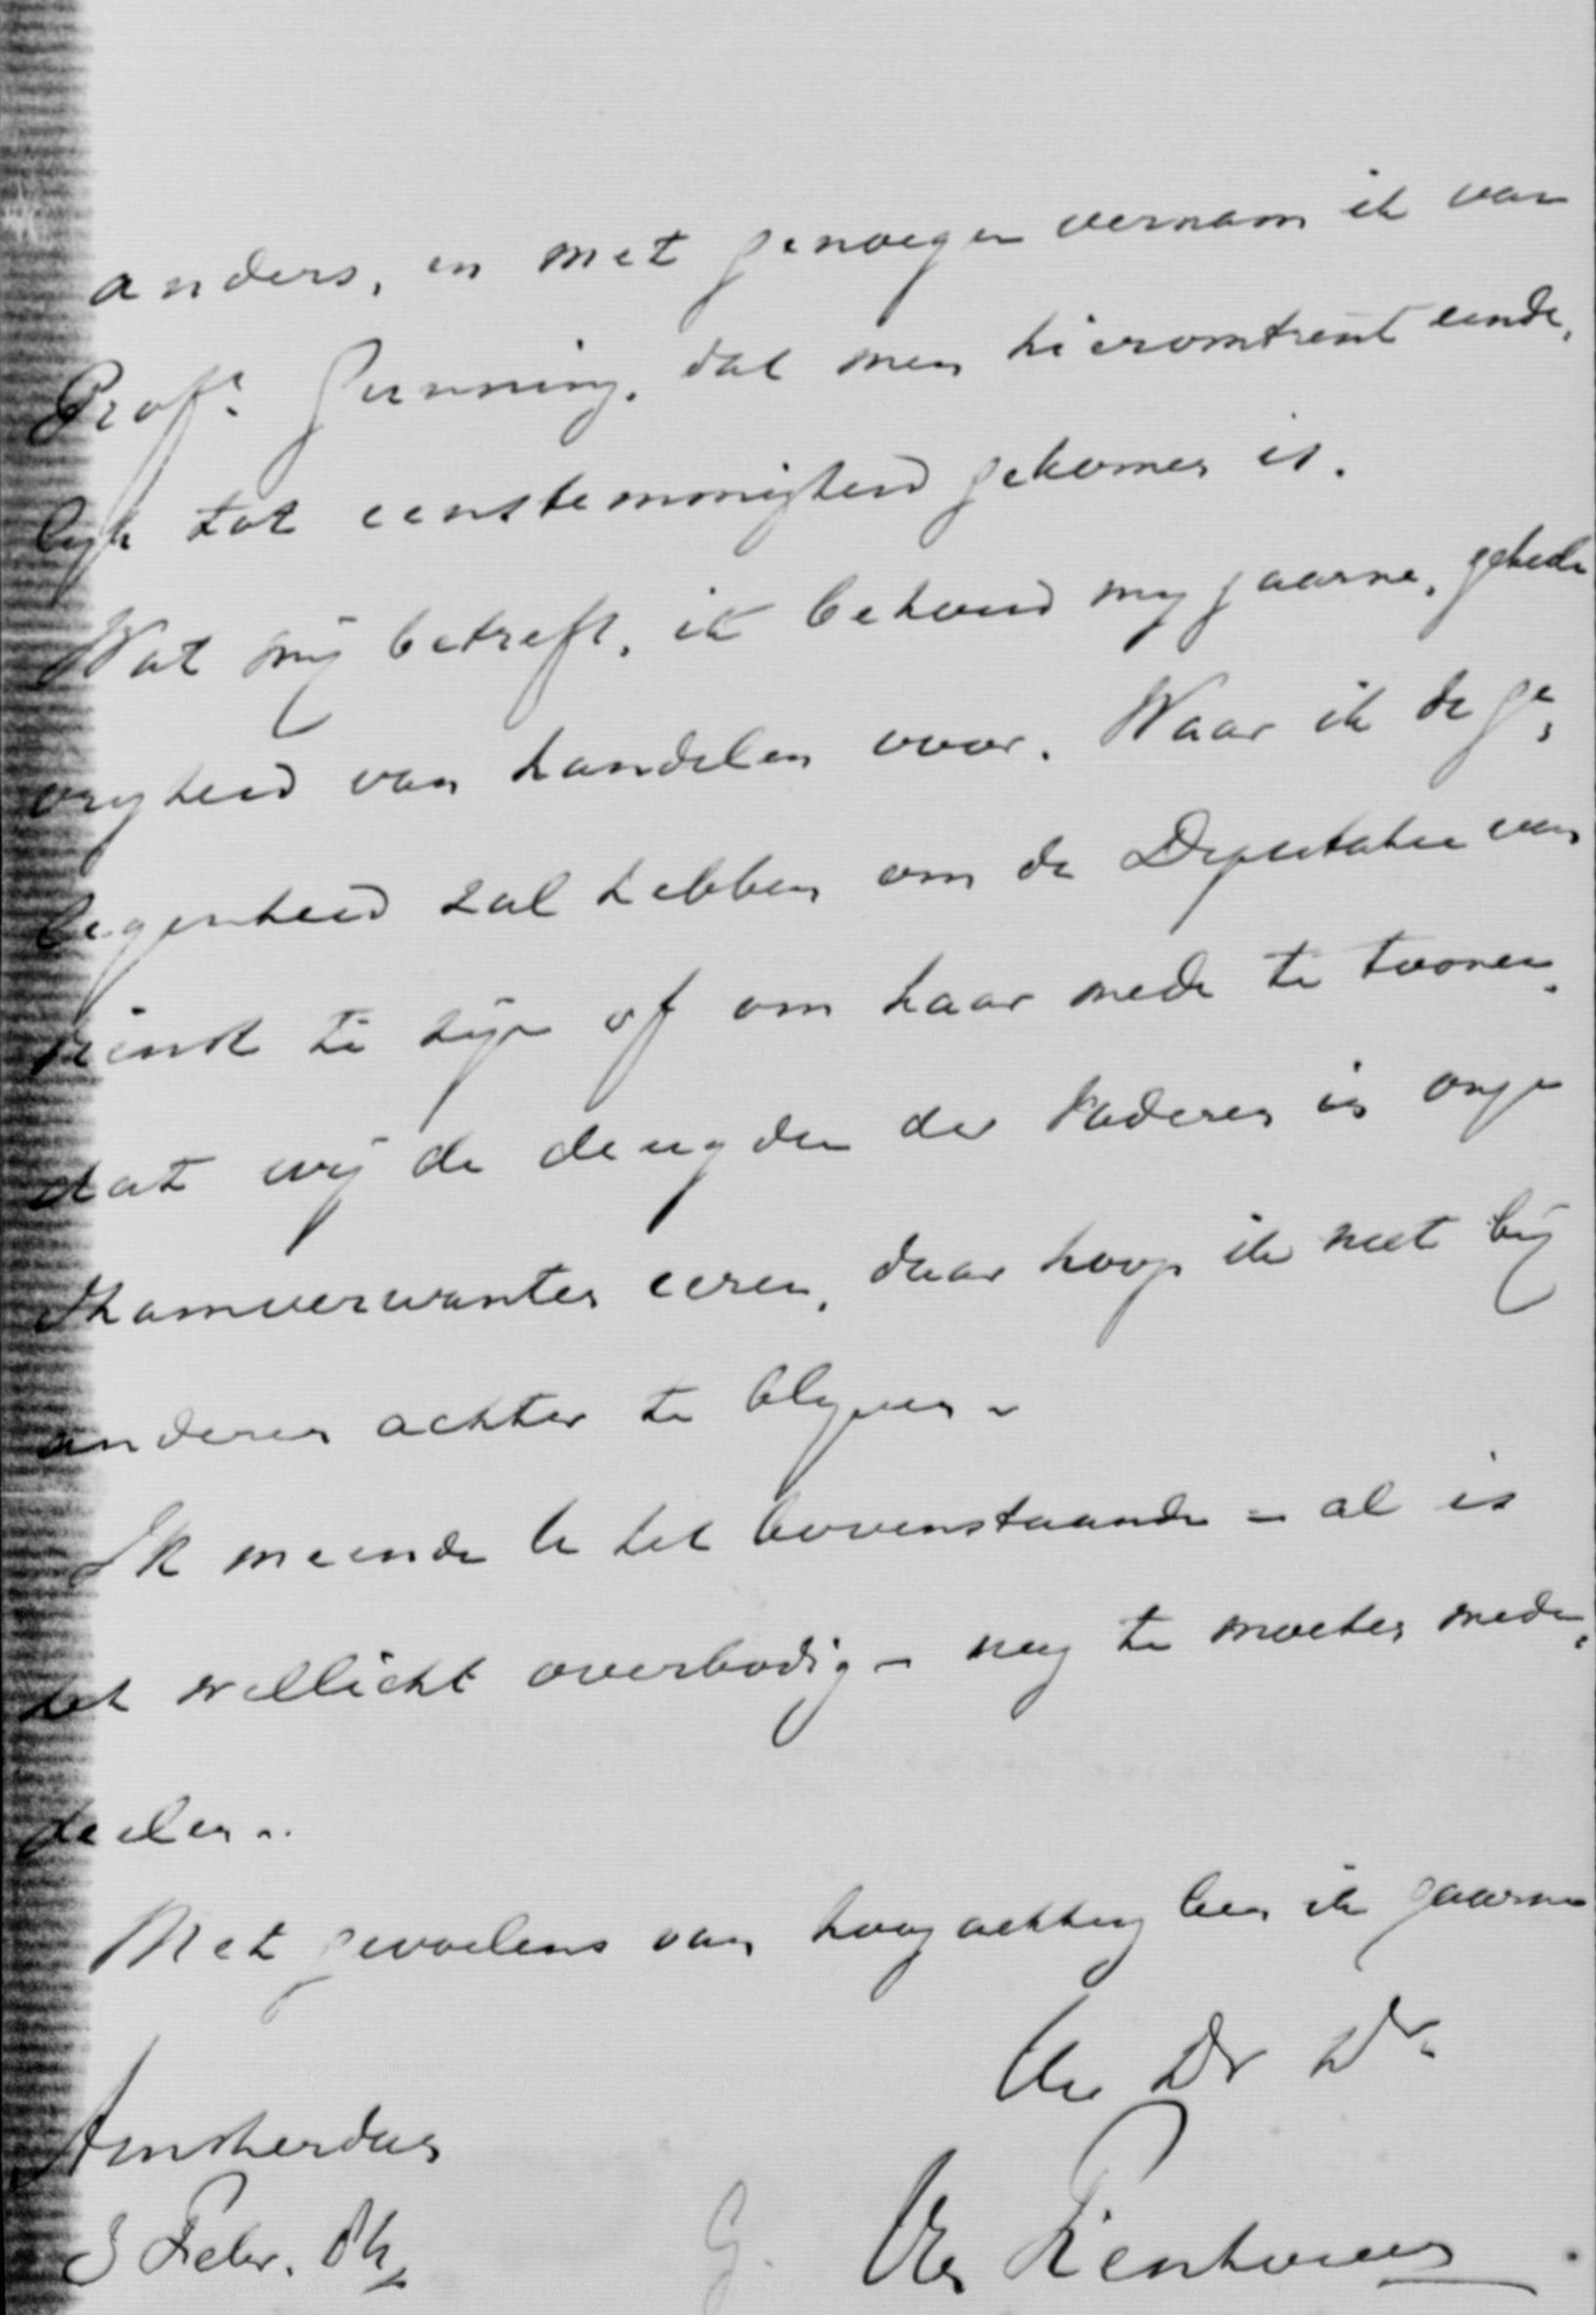 anders, en met genoegen vernam ik van
Profr. Gunning, dat men hieromtrent einde,
lijk tot eenstemmigheid gekomen is.
Wat mij betreft, ik behoud mij gaarne, geheele
vrijheid van handelen voor. Waar ik de ge,
legenheid zal hebben om de Deputatie van
dienst te zijn of om haar mede te toonen,
dat wij de deugden der Vaderen in onze
Stamverwanten eeren, daar hoop ik niet bij
anderen achter te blijven.
Ik meende U het bovenstaande – al is
het wellicht overbodig – nog te moeten mede,
deelen.
Met gevoelens van hoogachting ben ik gaarne
Uw Dr Dr.
Amsterdam
3 Febr. 84
G.